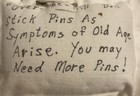 Stick Pins As
Symptoms of Old Age
Arise. You may
Need More Pins!